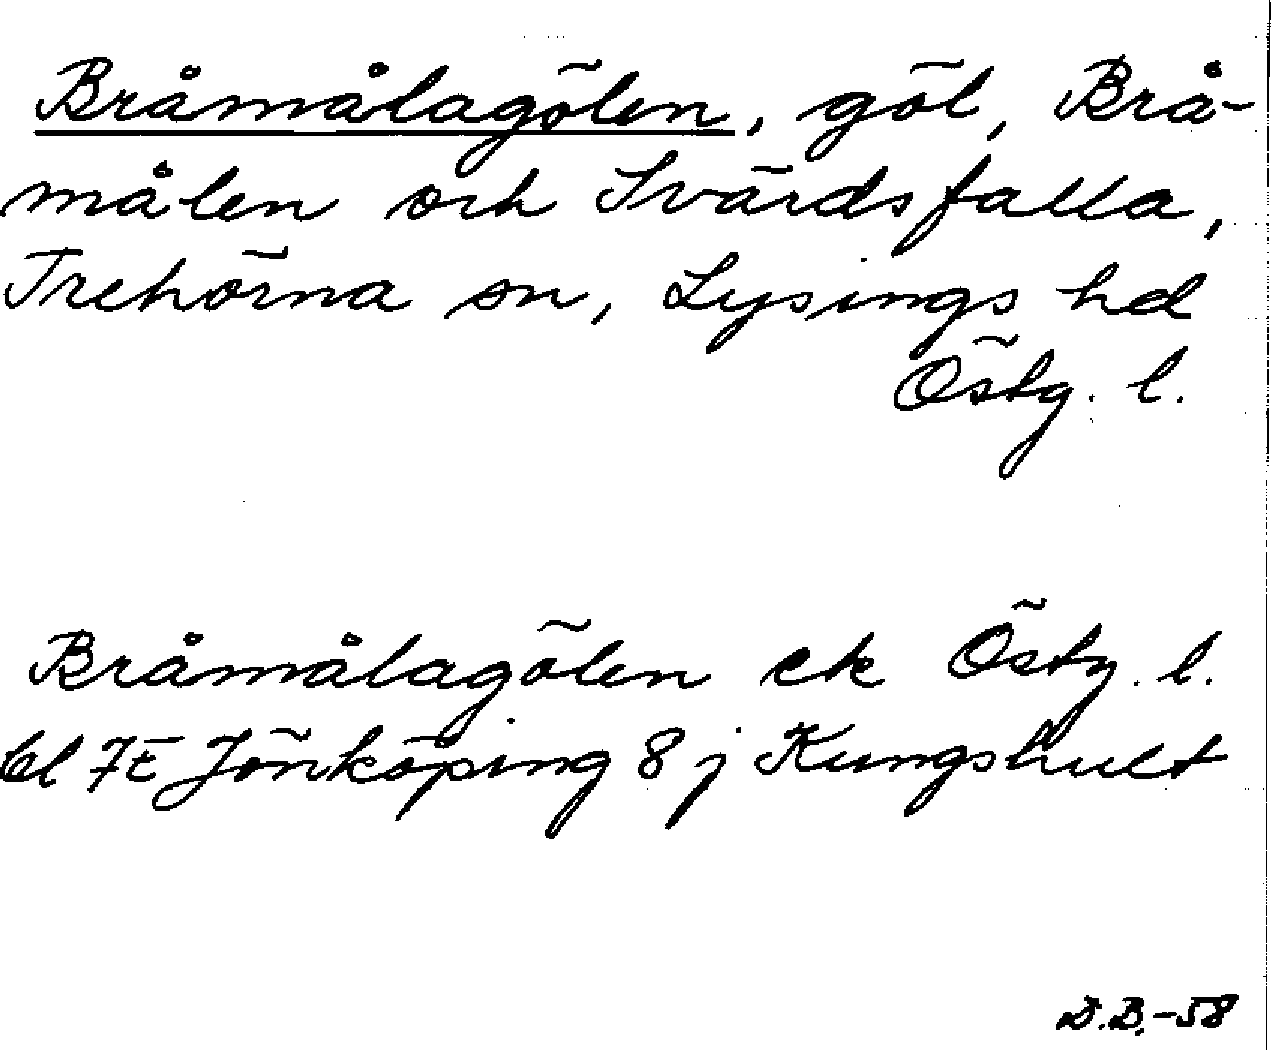 Bråmålagölen, göl, Brå-
målen och Svärdsfalla,
Trehörna sn, Lysings hd
Östg. l.
Bråmålagölen ek Östg. l.
bl 7E Jönköping 8 j Kungshult
D.B.-58